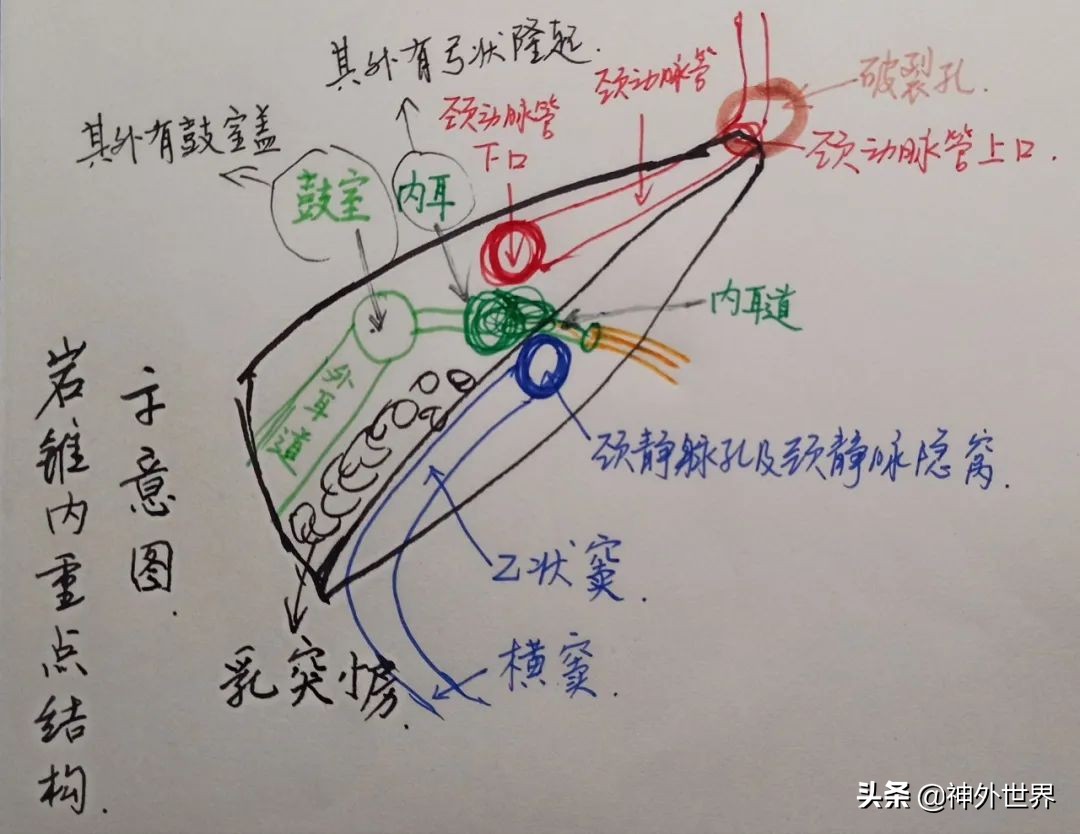 其外有弓状隆起.
颈动脉管
破裂孔.
颈动脉管
下口
颈动脉管上口.
其外有鼓室盖
鼓室
内耳
内耳道
外耳道
颈静脉孔及颈静脉隐窝.
乙状窦.
横窦.
乳突小房.
岩锥内重点结构
示意图.
头条 @神外世界